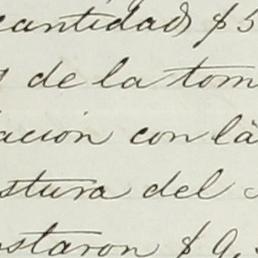 cantidad $5
de la tom
ación con la
stura del
staron $9,